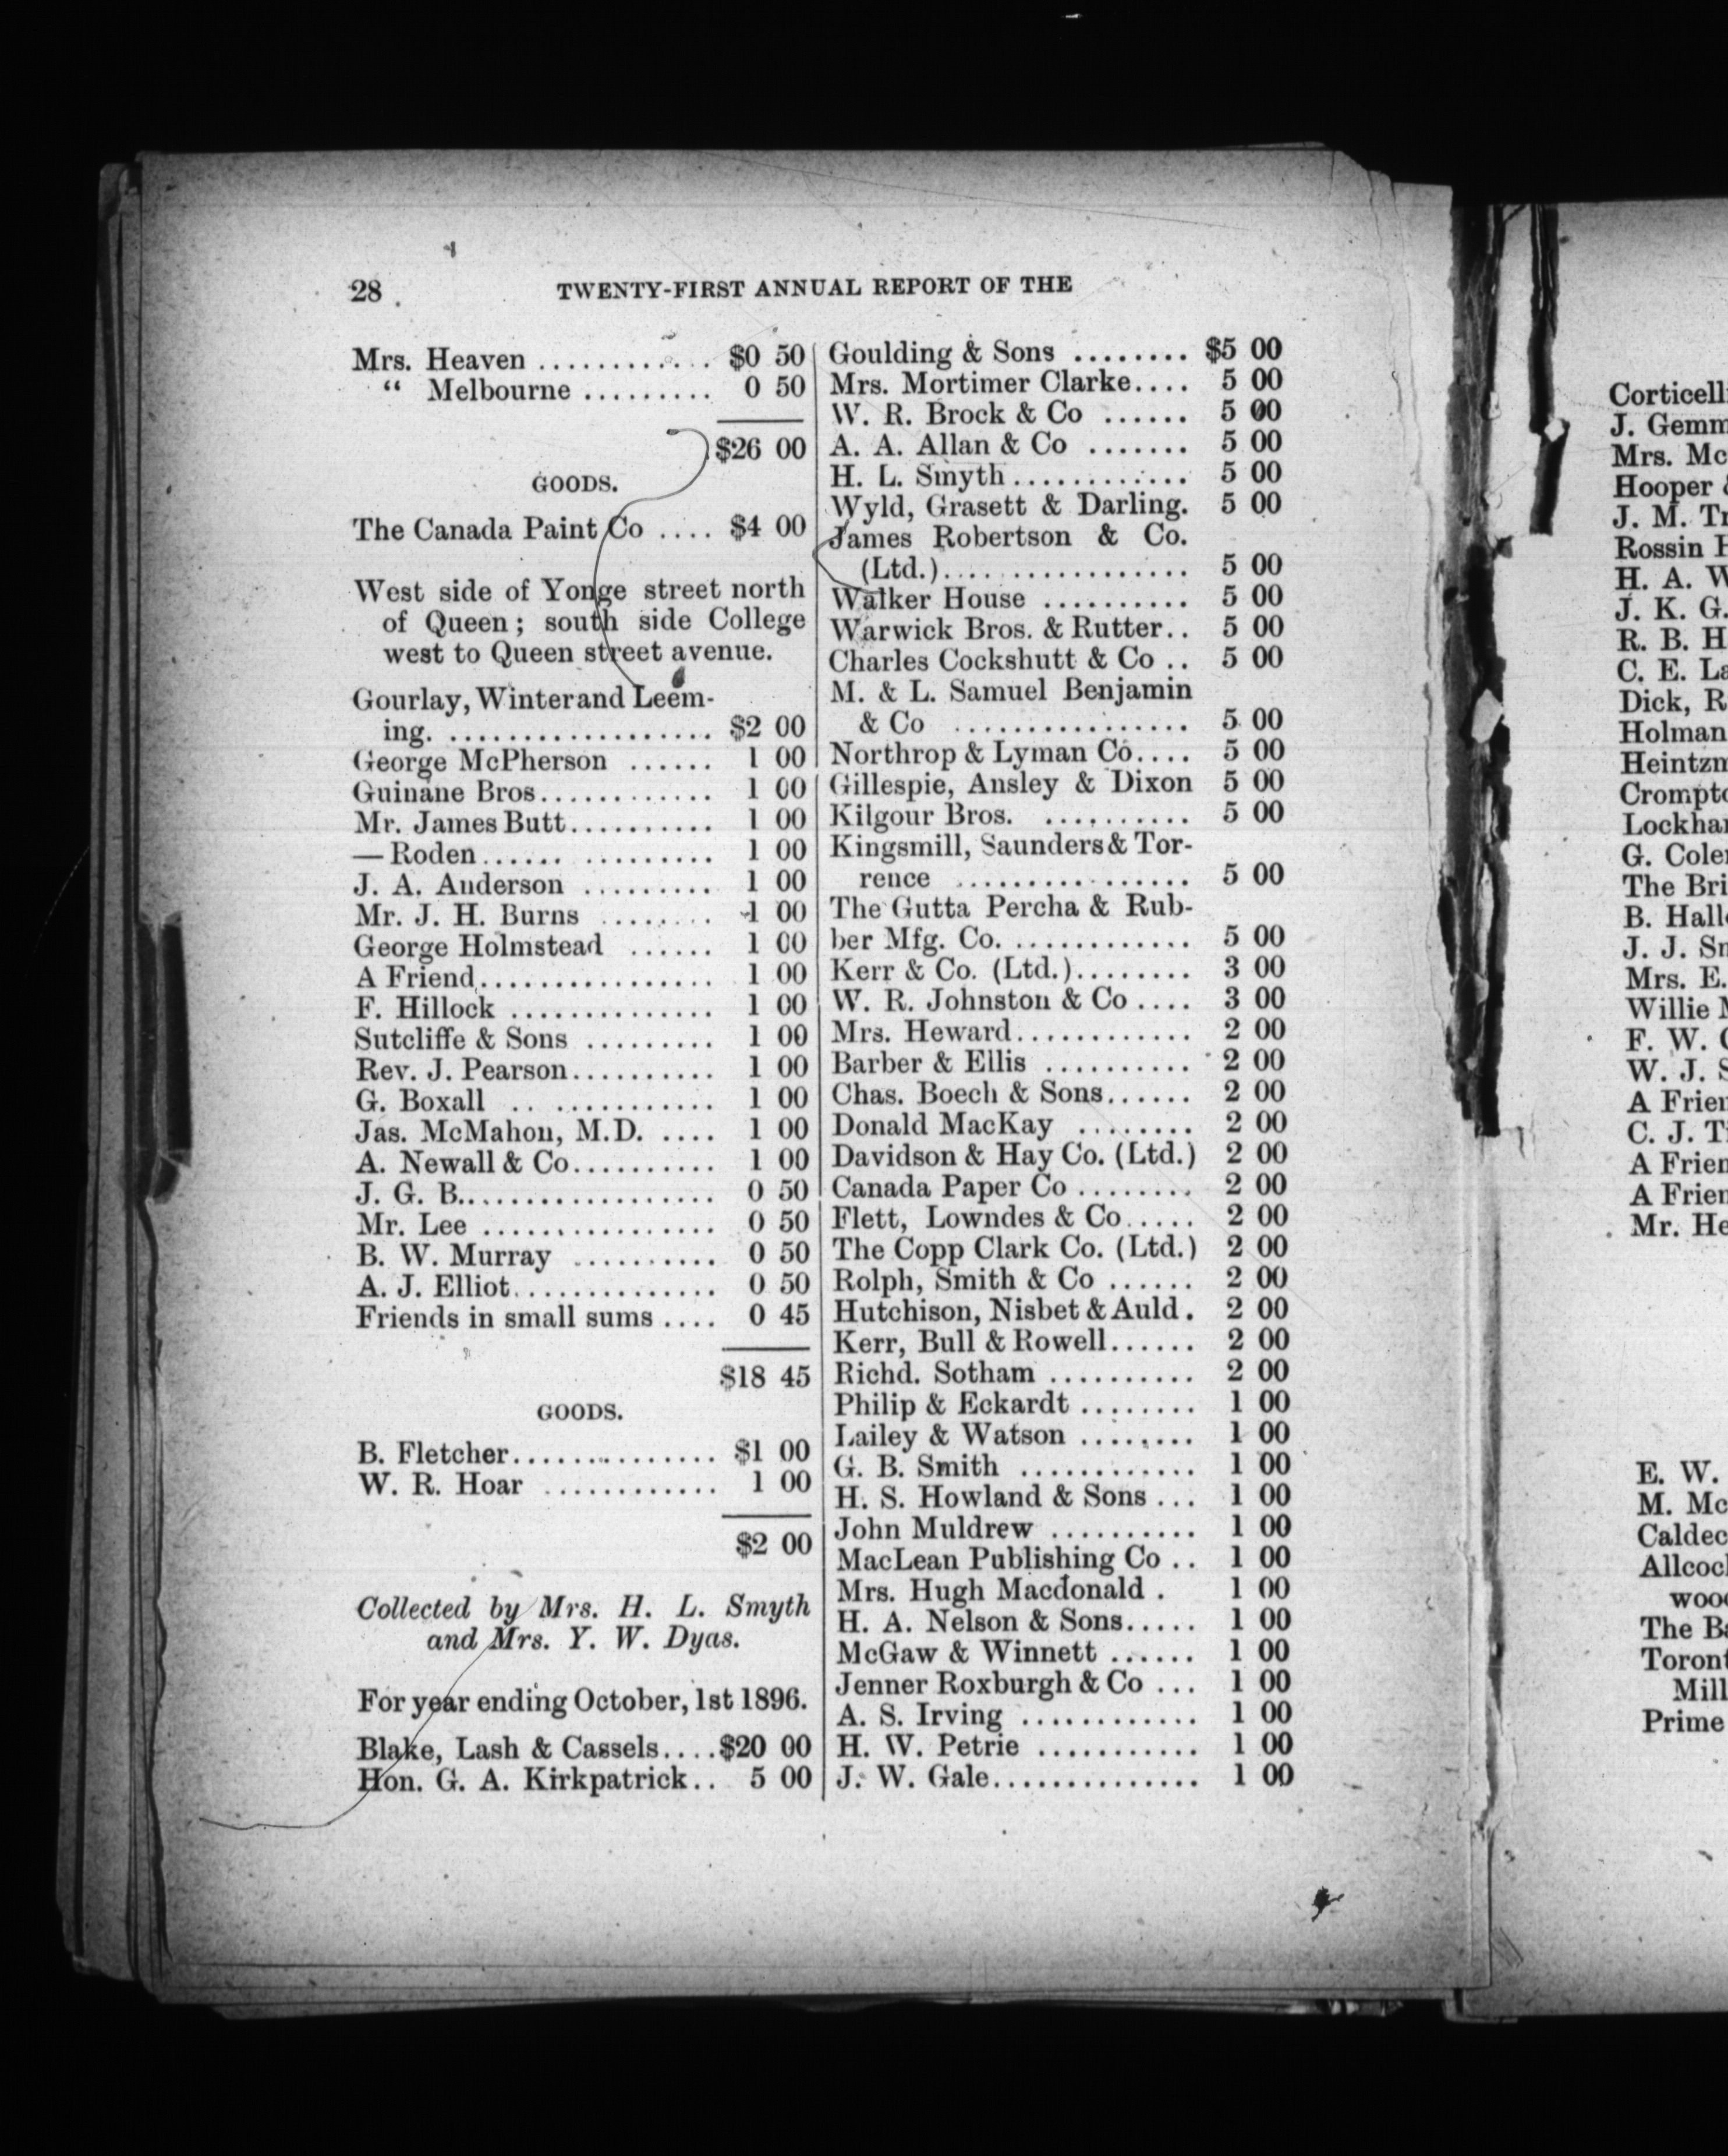 28 TWENTY-FIRST ANNUAL REPORT OF THE
Mrs. Heaven ............ $0 50
“ Melbourne ......... 0 50
$26 00
GOODS.
The Canada Paint Co .... $4 00
West side of Yonge street north
of Queen; south side College
west to Queen street avenue.
Gourlay, Winter and Leem-
ing. .................. $2 00
George McPherson ...... 1 00
Guinane Bros............ 1 00
Mr. James Butt.......... 1 00
— Roden................ 1 00
J. A. Anderson ......... 1 00
Mr. J. H. Burns ........ 1 00
George Holmstead ...... 1 00
A Friend................ 1 00
F. Hillock .............. 1 00
Sutcliffe & Sons ......... 1 00
Rev. J. Pearson.......... 1 00
G. Boxall .. ............ 1 00
Jas. McMahon, M.D. .... 1 00
A. Newall & Co.......... 1 00
J. G. B.................. 0 50
Mr. Lee ................ 0 50
B. W. Murray .......... 0 50
A. J. Elliot.............. 0 50
Friends in small sums .... 0 45
$18 45
GOODS.
B. Fletcher.............. $1 00
W. R. Hoar ............ 1 00
$2 00
Collected by Mrs. H. L. Smyth
and Mrs. Y. W. Dyas.
For year ending October, 1st 1896.
Blake, Lash & Cassels.... $20 00
Hon. G. A. Kirkpatrick.. 5 00
Goulding & Sons ........ $5 00
Mrs. Mortimer Clarke.... 5 00
W. R. Brock & Co ...... 5 00
A. A. Allan & Co ....... 5 00
H. L. Smyth............ 5 00
Wyld, Grasett & Darling. 5 00
James Robertson & Co.
(Ltd.).................. 5 00
Walker House .......... 5 00
Warwick Bros. & Rutter.. 5 00
Charles Cockshutt & Co .. 5 00
M. & L. Samuel Benjamin
& Co ................ 5 00
Northrop & Lyman Co.... 5 00
Gillespie, Ansley & Dixon 5 00
Kilgour Bros. .......... 5 00
Kingsmill, Saunders & Tor-
rence ................ 5 00
The Gutta Percha & Rub-
ber Mfg. Co. ............ 5 00
Kerr & Co. (Ltd.)........ 3 00
W. R. Johnston & Co .... 3 00
Mrs. Heward............ 2 00
Barber & Ellis .......... 2 00
Chas. Boech & Sons...... 2 00
Donald MacKay ........ 2 00
Davidson & Hay Co. (Ltd.) 2 00
Canada Paper Co ........ 2 00
Flett, Lowndes & Co..... 2 00
The Copp Clark Co. (Ltd.) 2 00
Rolph, Smith & Co ...... 2 00
Hutchison, Nisbet & Auld. 2 00
Kerr, Bull & Rowell...... 2 00
Richd. Sotham .......... 2 00
Philip & Eckardt ........ 1 00
Lailey & Watson ........ 1 00
G. B. Smith ............ 1 00
H. S. Howland & Sons ... 1 00
John Muldrew .......... 1 00
MacLean Publishing Co .. 1 00
Mrs. Hugh Macdonald . 1 00
H. A. Nelson & Sons..... 1 00
McGaw & Winnett ...... 1 00
Jenner Roxburgh & Co ... 1 00
A. S. Irving ............ 1 00
H. W. Petrie ........... 1 00
J. W. Gale.............. 1 00
Corticell
J. Gemm
Mrs. Mc
Hooper
J. M. Tr
Rossin
H. A. W
J. K. G.
R. B. H
C. E. La
Dick, R
Holman
Heintzm
Crompto
Lockhar
G. Coler
The Bri
B. Hall
J. J. Sm
Mrs. E.
Willie
F. W.
W. J. S
A Frien
C. J. T
A Frien
A Frien
Mr. He
E. W.
M. Mc
Caldec
Allcoc
woo
The Ba
Toront
Mill
Prime